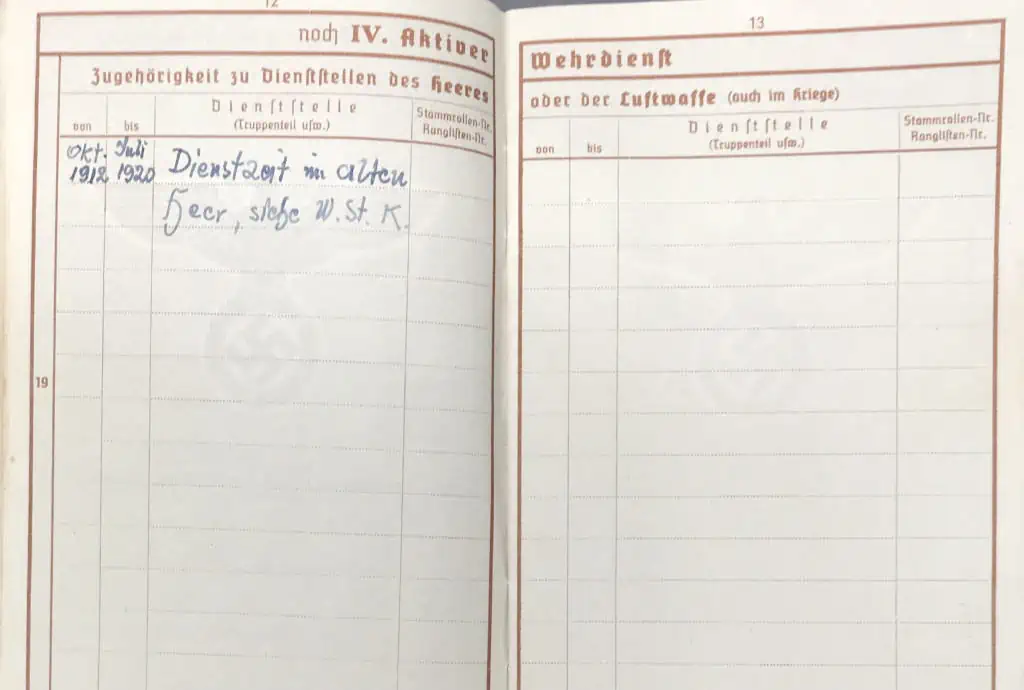 12
noch IV. Aktiver
Zugehörigkeit zu Dienststellen des Heeres
von
bis
Dienststelle
(Truppenteil usw.)
Stammrollen-Nr.
Ranglisten-Nr.
Okt. Juli
1912 1920 Dienstzeit im alten
Heer, siehe W. St. K.
19
13
Wehrdienst
oder der Luftwaffe (auch im Kriege)
von
bis
Dienststelle
(Truppenteil usw.)
Stammrollen-Nr.
Ranglisten-Nr.